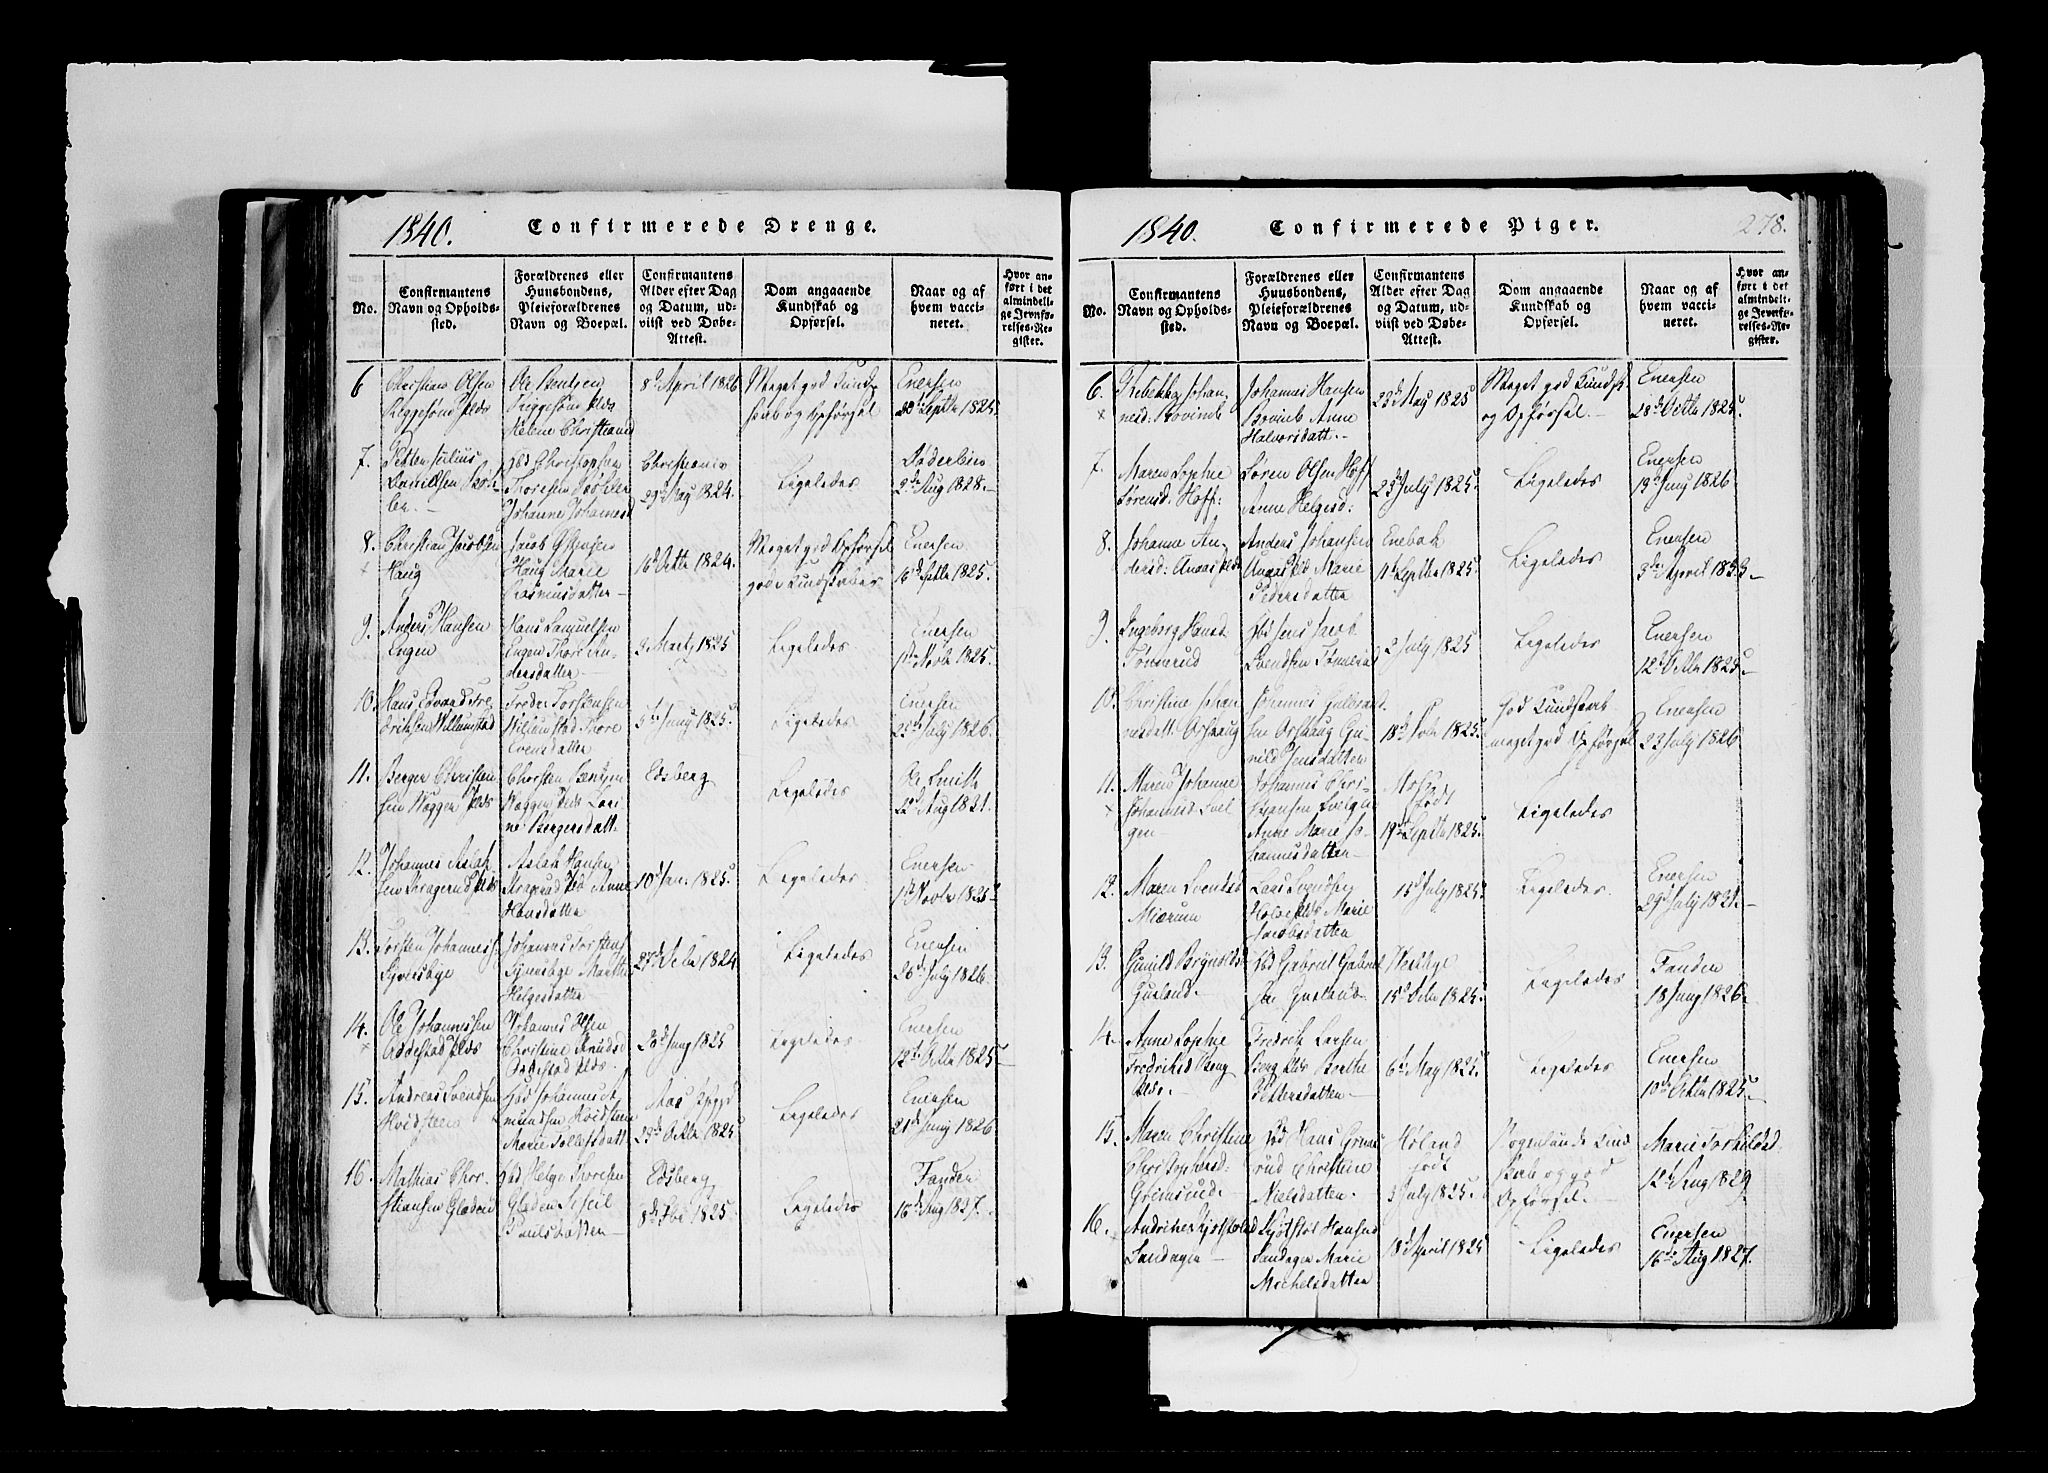 1840.
Confirmerede Drenge.
No.
Confirmantens
Navn og Opholds-
sted.
Forældrenes eller
Huusbondens,
Pleieforældrenes
Navn og Boepæl.
Confirmantens
Alder efter Dag
og Datum, ud-
viist ved Døbe-
Attest.
Dom angaaende
Kundskab og
Opførsel.
Naar og af
hvem vacci-
neret.
Hvor an-
ført i det
almindeli-
ge Jevnfø-
relses-Re-
gister.
6
Christian Olsen
Ole Bentsen
Helene Christiansd
8d April 1826
Meget god Kund-
skab og Opførsel
Enersen
Septbr 1825
7.
Petter Julius
Danielsen
hbd Christophen
Thoresen
Johanne Johannesd
Christiania
29d May 1824.
Ligeledes
Døderlein
2d Aug 1828.
8.
Christian Jacobsen
Haug
Jacob
Haug Marie
Rasmusdatter
16d Octbr 1824.
Meget god Opførsel
god Kundskaber
Enersen
16d Septbr 1825.
9.
Anders Hansen
Engen
Hans Samuelsen
Engen Thore An-
dersdatter
9 Martz 1825
Ligeledes
Enersen
1d Novbr 1825.
10.
Hans Edvard Fre-
driksen Willumstad
Fredr. Torstensen
Willumstad Thore
Evensdatter
5d Juny 1825.
Ligeledes
Enersen
25d July 1826.
11.
Berger Christen-
sen Woggen Plds
Christen Bentsen
Woggen Plds Kari-
ne Bergersdatt.
Edsberg
Ligeledes
Ole Smith
Aug 1821.
12.
Johannes Aslak-
sen Kragerud Plds
Aslak Hansen
Kragerud Pld Anne
Hansdatter
10d Jan. 1825
Ligeledes
Enersen
1d Novbr 1825
13.
Torsten Johanness.
Syversbye
Johannes Torstens.
Syversbye Marthe
Helgesdatter
27d Decbr 1824.
Ligeledes
Enersen
26d July 1826
14.
Ole Johannessen
Oddestad Plds
Johannes Olsen
Christine Knudsd
Oddestad Plds.
Juny 1825
Ligeledes
Enersen
12d Octbr 1825
15.
Andreas Svendsen
Hvidsteen
hbd Johannes A-
mundsen Hvidsteen
Marie Tollefsdatt
Aas
23d Octbr 1825
Ligeledes
Enersen
21d Juny 1826
16.
Mathias Chri-
stiansen Gladen
hbd Helge Thoresen
Gladen
Poulsdatter
Edsberg
8d Feb 1825
Ligeledes
Fanden
16d Aug 1827.
1840.
Confirmerede Piger.
278.
No.
Confirmantens
Navn og Opholds-
sted.
Forældrenes eller
Huusbondens,
Pleieforældrenes
Navn og Boepæl.
Confirmantens
Alder efter Dag
og Datum, ud-
viist ved Døbe-
Attest.
Dom angaaende
Kundskab og
Opførsel.
Naar og af
hvem vacci-
neret.
Hvor an-
ført i det
almindeli-
ge Jevnfø-
relses-Re-
gister.
6.
Rebekka Johan-
nesd: Brovind
Johannes Hansen
Brovind Anne
Halvorsdatt.
23d May 1825
Meget god Kundsk.
og Opførsel.
Enersen
28d Octbr 1825.
7.
Maren Sophie
Sørensd. Hoff:
Søren Olsen Hoff
Anne Helgesd:
23 July 1825.
Ligeledes
Enersen
13d Juny 1826
8.
Johanne An-
dersd:
Anders Johansen
Marie
Pedersdatter
Enebak
11 Septbr 1825.
Ligeledes
Enersen
3d April 1833
9.
Ingeborg Hansd.
Tønnerud
hbd Jens Jacob
Svendsen Tønnerud
2 July 1825
Ligeledes
Enersen
12d Octbr 1825
10.
Christine Johan-
nesdatt. Orshaug
Johannes Gulbrand-
sen Orshaug Gu-
nild Jensdatter
18d 1825.
God Kundskab
meget god Opførsel
Enersen
23 July 1826
11.
Maren Johanne
Johannesd
gen
Johannes Chri-
stiansen
Anne Marie Jo-
hannesdatter
Moss
født
19d Septbr 1825.
Ligeledes
12.
Maren Svendsd
Mierum
Lars Svendsen
Marie
Jacobsdatter
15d July 1825
Ligeledes.
Enersen
29d July
13.
Gunild Brynildsd
hbd Gabriel Gabriel-
sen
15d 1825.
Ligeledes
Fanden
18 Juny 1826.
14.
Anne Sophie
Fredriksd Berg
Plds.
Fredrik Larsen
Berg Plds Berthe
Pettersdatter
6d May 1825.
Ligeledes
Enersen
10d Octbr 1825.
15.
Maren Christine
Christophersd.
Grimsrud.
hbd Hans Grims-
rud Christine
Nielsdatter.
Høland
født
3 July 1825.
Nogenlunde Kund-
skab og god
Opførsel.
Marie Torkildsd.
12d Aug 1829
16.
Andrine Kjøstolsd
Sandager
Kjøstol Hansen
Sandager Marie
Michelsdatter
18d April 1825
Ligeledes
Enersen
16d Aug 1827.